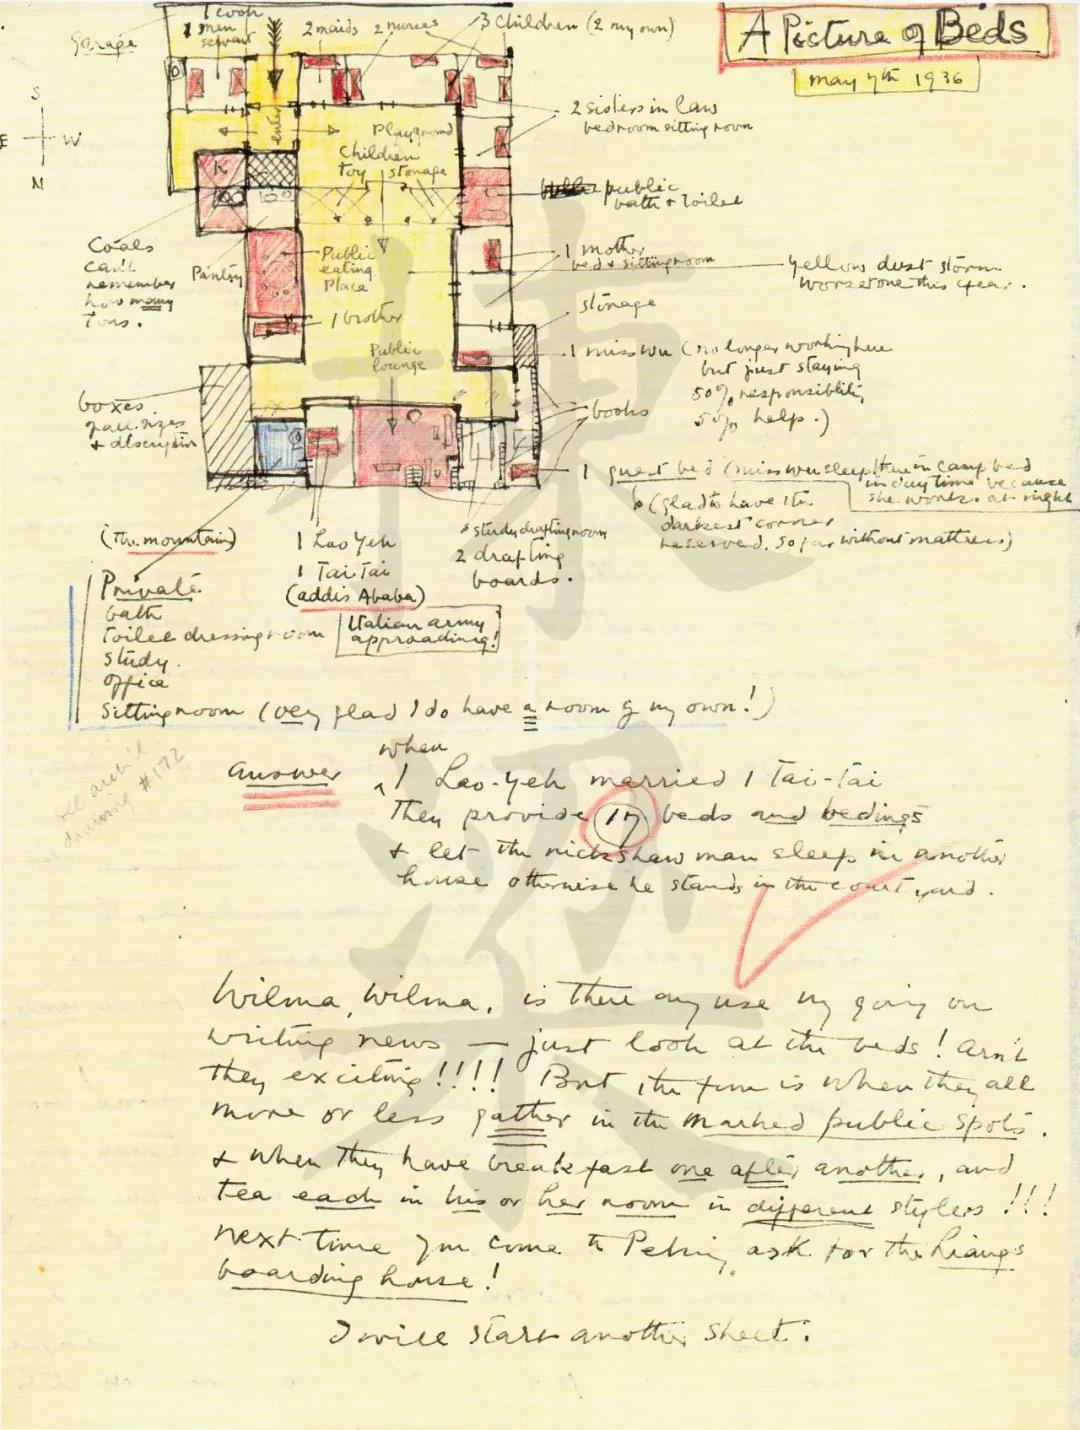 A Picture of Beds
may 7th 1936
1 cook
1 men servant
Garage
2 maids
2 nurses
3 children (2 my own)
S
E
W
N
enter
Playground
Children
toy storage
K
2 sisters in law
bedroom sitting room
public
bath & toilet
Coals
can't
remember
how many
tons.
Pantry
Public
eating
Place
1 mother
bed & sitting room
yellow dust storm
worse one this year.
1 brother
storage
Public
lounge
1 miss wu (no longer working here
but just staying
50% responsibility
50% help.)
boxes
of all sizes
& description
books
1 guest bed (miss wu sleep there in camp bed
in daytime because
she works at night
(glad to have the
darkest corner
reserved. so far without mattress)
(The mountain)
1 Lao Yeh
1 Tai Tai
(addis Ababa)
Italian army
approaching!
* study drafting room
2 drafting
boards.
Private
bath
toilet dressing room
study.
office
sitting room (very glad I do have a room of my own!)
see arch'l
drawing #172
answer
when
1 Lao-Yeh married 1 Tai-Tai
they provide 17 beds and bedings
& let the rickshaw man sleep in another
house otherwise he stands in the court yard.
Wilma, Wilma, is there any use my going on
writing news — just look at the beds! arn't
they exciting!!!! But the fun is when they all
more or less gather in the marked public spots.
& when they have breakfast one after another, and
tea each in his or her room in different stylers!!!
next time you come to Peking, ask for the Liangs
boarding house!
I will start another sheet.